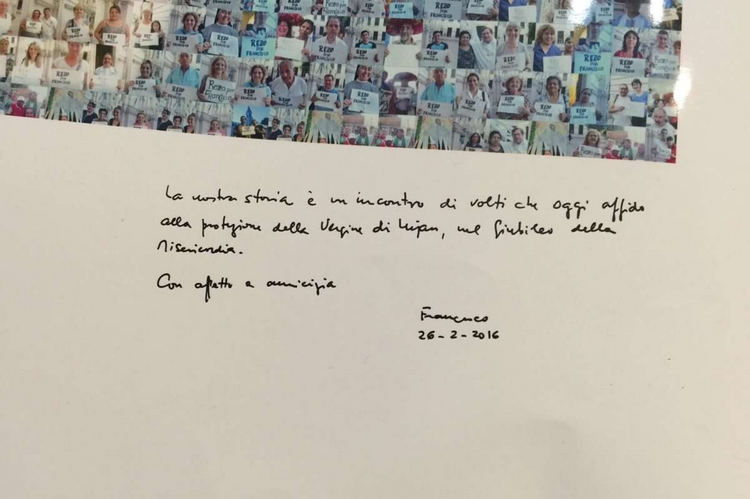 REZO POR FRANCISCO
La nostra storia è un incontro di volti che oggi affido
alla protezione della Vergine di Lujan, nel Giubileo della
Misericordia.
Con affetto e amicizia
Francesco
26-2-2016